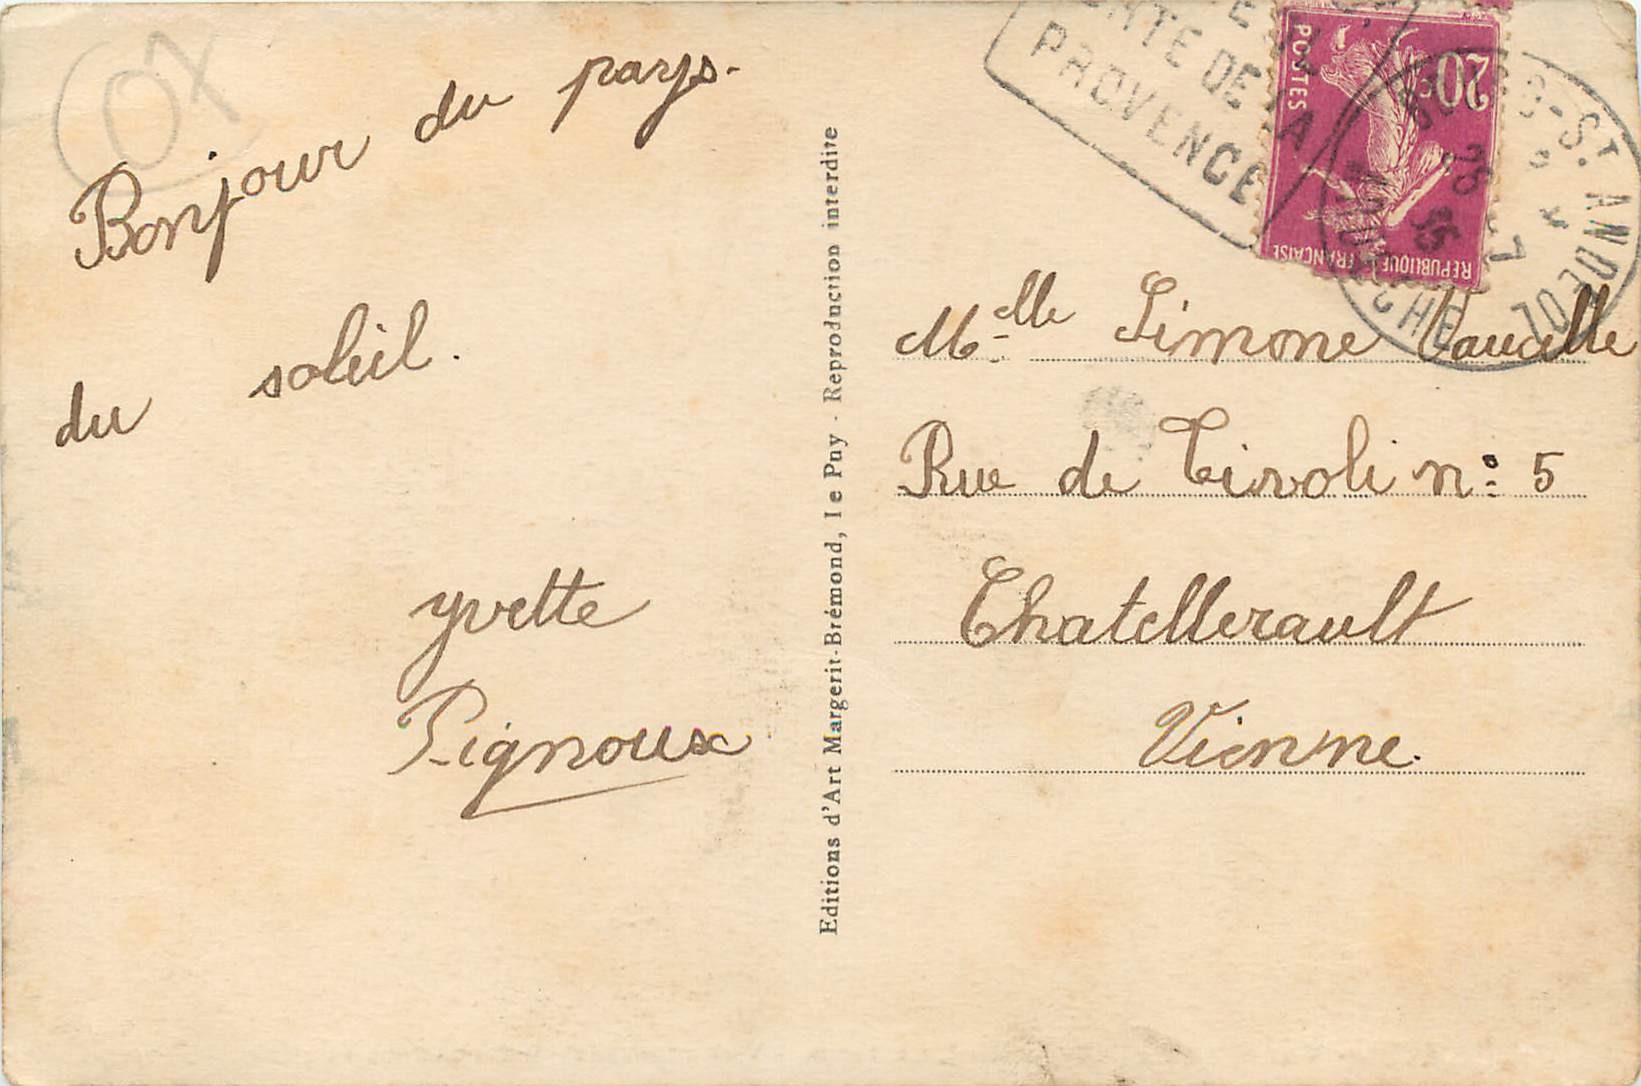 07
Bonjour du pays.
du soleil.
yvette
Pignoux
Editions d'Art Margerit-Brémond, le Puy - Reproduction interdite
PORTE DE LA
PROVENCE
POSTES
20c
REPUBLIQUE FRANÇAISE
BOURG-ST ANDEOL
ARDECHE
Melle Simone Vaucelle
Rue de Tivoli n: 5
Chatellerault
Vienne.